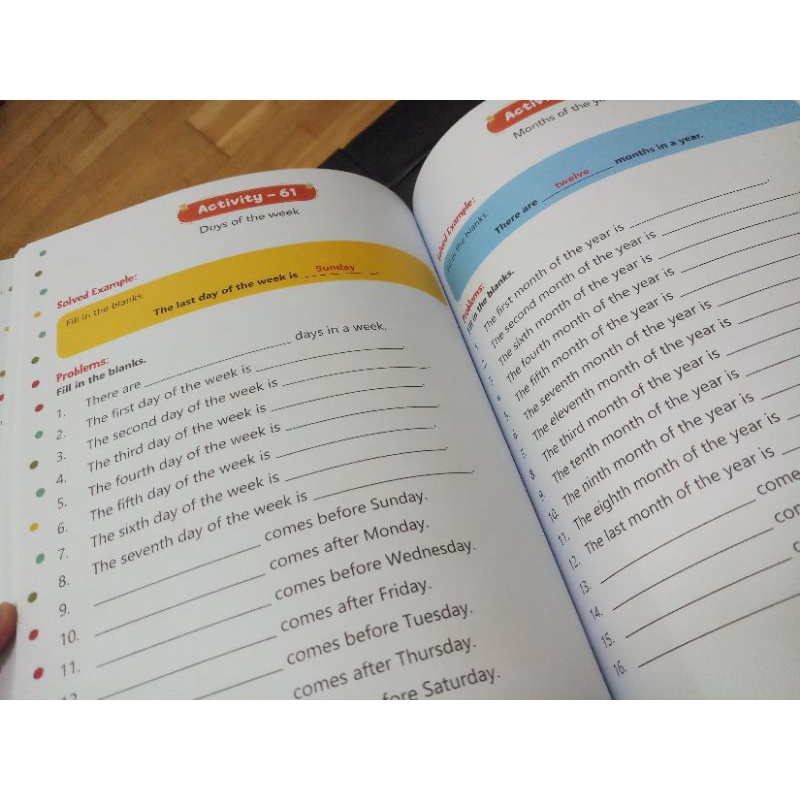 Activity – 61
Days of the week
Solved Example:
Fill in the blanks.
The last day of the week is Sunday.
Problems:
Fill in the blanks.
1. There are ____ days in a week.
2. The first day of the week is ____.
3. The second day of the week is ____.
4. The third day of the week is ____.
5. The fourth day of the week is ____.
6. The fifth day of the week is ____.
7. The sixth day of the week is ____.
8. The seventh day of the week is ____.
9. ____ comes before Sunday.
10. ____ comes after Monday.
11. ____ comes before Wednesday.
12. ____ comes after Friday.
____ comes before Tuesday.
____ comes after Thursday.
Saturday.
Months of the
Solved Example:
Fill in the blanks.
There are twelve months in a year.
Problems:
Fill in the blanks.
The first month of the year is ____.
2. The second month of the year is ____
3. The sixth month of the year is ____
4. The fourth month of the year is ____
5. The fifth month of the year is ____
6. The seventh month of the year is ____
7. The eleventh month of the year is ____
8. The third month of the year is ____
9. The tenth month of the year is ____
10. The ninth month of the year is ____
11. The eighth month of the year is ____
12. The last month of the year is ____
13. ____ come
14. ____
15. ____
16. ____